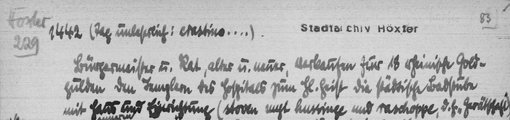 Höxter
229
1442 (Tag unleserlich: crastino....).
Stadtarchiv Höxter
83
Bürgermeister u. Rat, alter u. neuer, verkaufen für 18 rheinische Gold-
gulden den Templern des Hospitals zum Hl. Geist die städtische Badstube
mit Haus und Einrichtung (stoven myt hussinge und raschoppe, d.h. Gerätschaft)